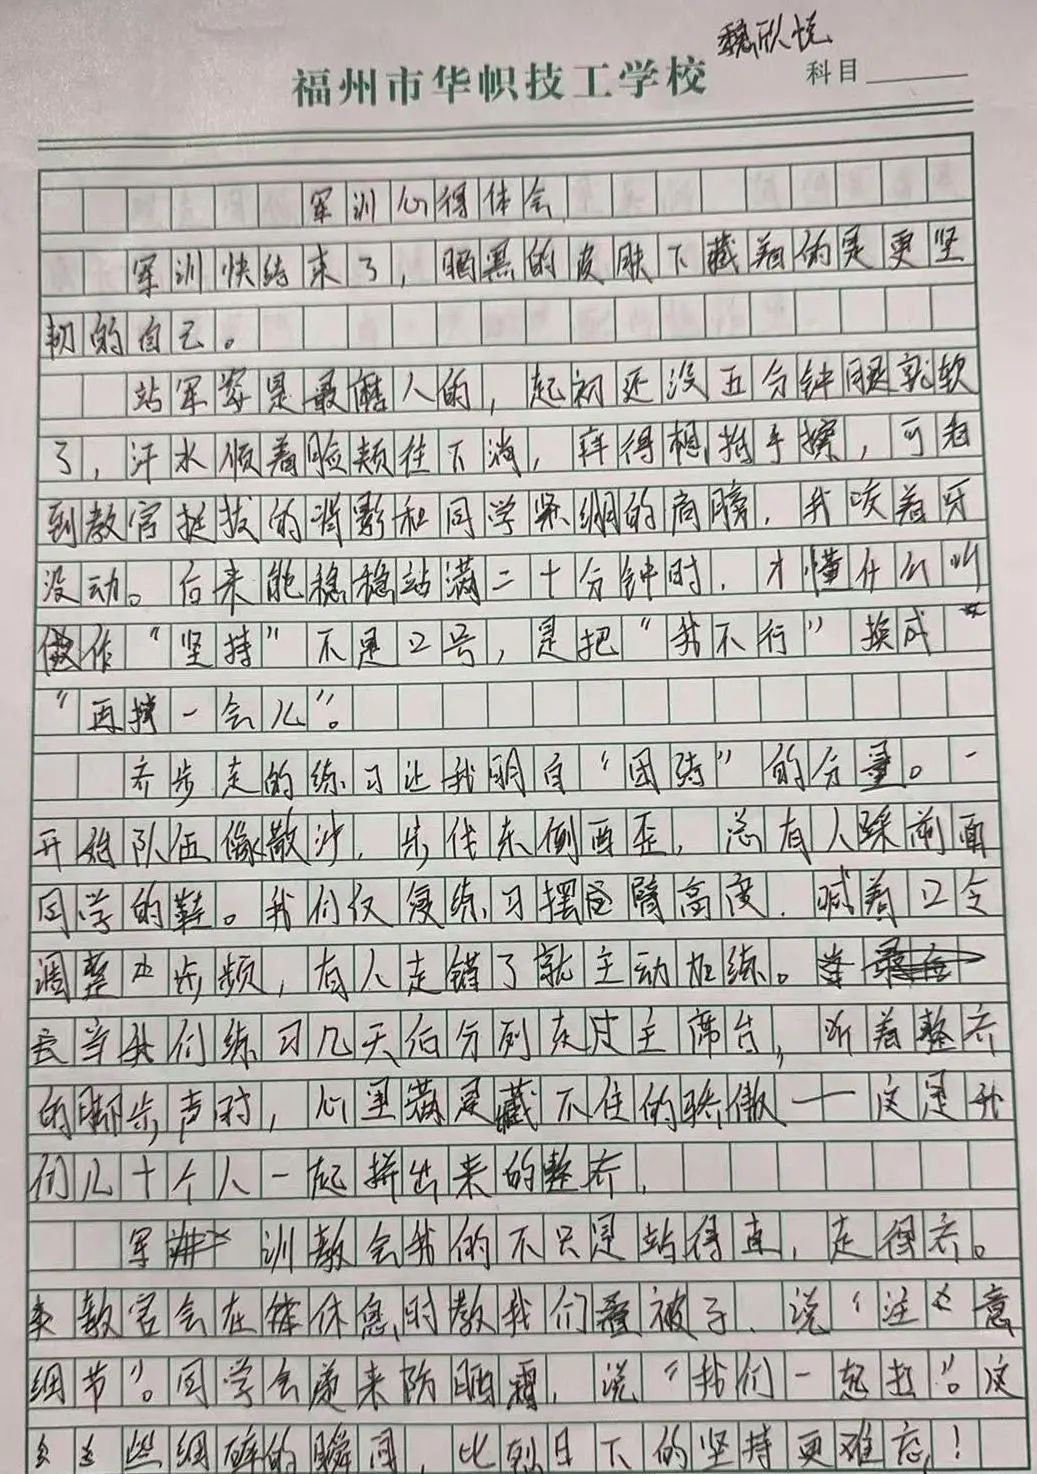 魏欣悦
福州市华帜技工学校
科目
军训心得体会
军训快结束了，晒黑的皮肤下藏着的是更坚
韧的自己。
站军姿是最磨人的，起初还没五分钟腿就软
了，汗水顺着脸颊往下淌，痒得想抬手擦，可看
到教官挺拔的背影和同学紧绷的肩膀，我咬着牙
没动。后来能稳稳站满二十分钟时，才懂什么叫
做作“坚持”不是口号，是把“我不行”换成
“再撑一会儿”。
齐步走的练习让我明白“团结”的分量。一
开始队伍像散沙，步伐东倒西歪，总有人踩前面
同学的鞋。我们反复练习摆臂高度，喊着口令
调整步频，有人走错了就主动加练。
当我们练习几天后分列走过主席台，听着整齐
的脚步声时，心里满是藏不住的骄傲——这是我
们几十个人一起拼出来的整齐，
军训教会我的不只是站得直，走得齐。
教官会在休息时教我们叠被子，说“注意
细节”。同学会递来防晒霜，说“我们一起扛”。这
些细碎的瞬间，比烈日下的坚持更难忘！